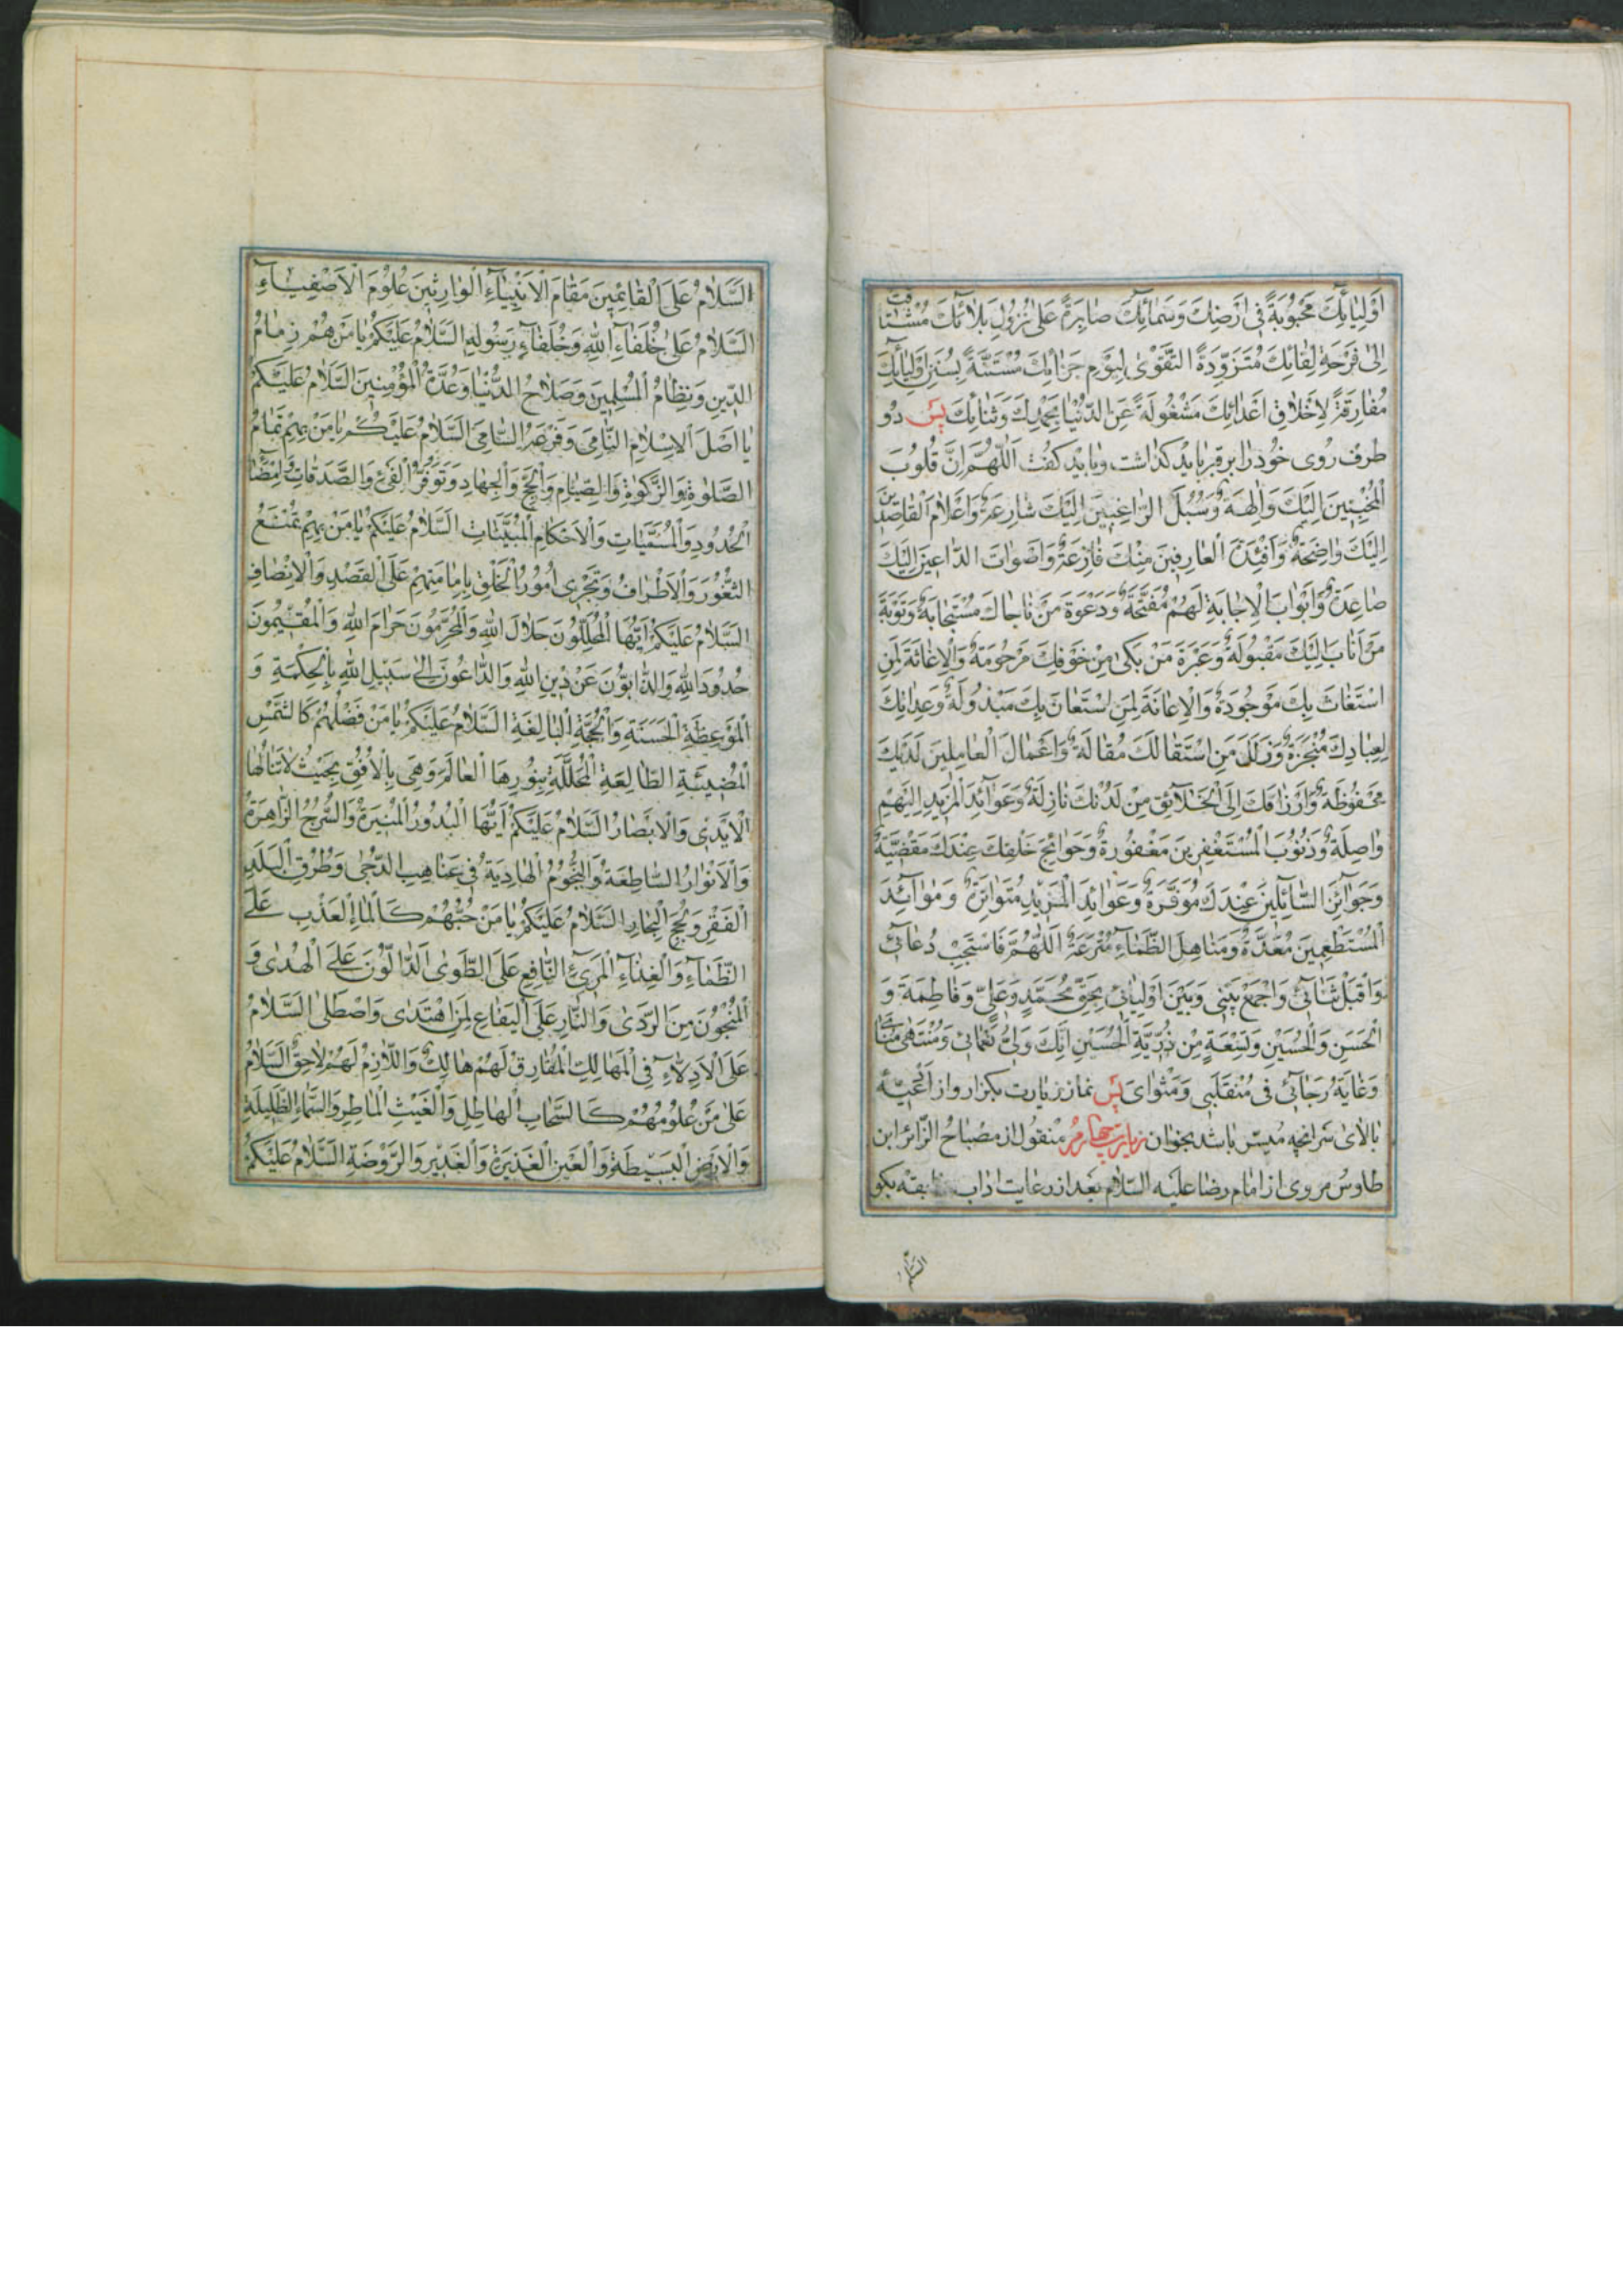 اَوْلِيَآئِكَ مَحْبُوبَةً فِى اَرْضِكَ وَسَمَآئِكَ صَابِرَةً عَلىٰ نُزُولِ بَلَآئِكَ مُشْتَاقَةً
اِلىٰ فَرْحَةِ لِقَائِكَ مُتَزَوِّدَةً التَّقْوىٰ لِيَوْمِ جَزَائِكَ مُسْتَنَّةً بِسُنَنِ اَوْلِيَآئِكَ
مُفَارِقَةً لِاَخْلَاقِ اَعْدَائِكَ مَشْغُولَةً عَنِ الدُّنْيَا بِحَمْدِكَ وَثَنَائِكَ پس دو
طرف روى خود را بر قبر بايد كذاشت و بايد كفت اَللّٰهُمَّ اِنَّ قُلُوبَ
الْمُخْبِتِينَ اِلَيْكَ وَالِهَةٌ وَسُبُلَ الرَّاغِبِينَ اِلَيْكَ شَارِعَةٌ وَاَعْلَامَ الْقَاصِدِينَ
اِلَيْكَ وَاضِحَةٌ وَاَفْئِدَةَ الْعَارِفِينَ مِنْكَ فَازِعَةٌ وَاَصْوَاتَ الدَّاعِينَ اِلَيْكَ
صَاعِدَةٌ وَاَبْوَابَ الْاِجَابَةِ لَهُمْ مُفَتَّحَةٌ وَدَعْوَةَ مَنْ نَاجَاكَ مُسْتَجَابَةٌ وَتَوْبَةَ
مَنْ اَنَابَ اِلَيْكَ مَقْبُولَةٌ وَعَبْرَةَ مَنْ بَكىٰ مِنْ خَوْفِكَ مَرْحُومَةٌ وَالْاِغَاثَةَ لِمَنِ
اسْتَغَاثَ بِكَ مَوْجُودَةٌ وَالْاِعَانَةَ لِمَنِ اسْتَعَانَ بِكَ مَبْذُولَةٌ وَعِدَاتِكَ
لِعِبَادِكَ مُنْجَزَةٌ وَزَلَلَ مَنِ اسْتَقَالَكَ مُقَالَةٌ وَاَعْمَالَ الْعَامِلِينَ لَدَيْكَ
مَحْفُوظَةٌ وَاَرْزَاقَكَ اِلَى الْخَلَائِقِ مِنْ لَدُنْكَ نَازِلَةٌ وَعَوَآئِدَ الْمَزِيدِ اِلَيْهِمْ
وَاصِلَةٌ وَذُنُوبَ الْمُسْتَغْفِرِينَ مَغْفُورَةٌ وَحَوَائِجَ خَلْقِكَ عِنْدَكَ مَقْضِيَّةٌ
وَجَوَآئِزَ السَّائِلِينَ عِنْدَكَ مُوَفَّرَةٌ وَعَوَائِدَ الْمَزِيدِ مُتَوَاتِرَةٌ وَمَوَآئِدَ
الْمُسْتَطْعِمِينَ مُعَدَّةٌ وَمَنَاهِلَ الظِّمَآءِ مُتْرَعَةٌ اَللّٰهُمَّ فَاسْتَجِبْ دُعَآئِى
وَاقْبَلْ ثَنَآئِى وَاجْمَعْ بَيْنِى وَبَيْنَ اَوْلِيَائِى بِحَقِّ مُحَمَّدٍ وَعَلِىٍّ وَفَاطِمَةَ وَ
الْحَسَنِ وَالْحُسَيْنِ وَتِسْعَةٍ مِنْ ذُرِّيَّةِ الْحُسَيْنِ اِنَّكَ وَلِىُّ نَعْمَائِى وَمُنْتَهىٰ مُنَاىَ
وَغَايَةُ رَجَآئِى فِى مُنْقَلَبِى وَمَثْوَاىَ پس نماز زيارت بكزار و از ادعيۀ
بالاى سر انچه ميسر باشد بخوان زيارت چهارم منقول از مصباح الزائر ابن
طاوس مروى از امام رضا عليه السلام بعد از رعايت اداب سابقه بكو
السّلام
اَلسَّلَامُ عَلَى الْقَائِمِينَ مَقَامَ الْاَنْبِيَآءِ الْوَارِثِينَ عُلُومَ الْاَصْفِيَآءِ
اَلسَّلَامُ عَلىٰ خُلَفَآءِ اللهِ وَخُلَفَآءِ رَسُولِهِ اَلسَّلَامُ عَلَيْكُمْ يَا مَنْ هُمْ زِمَامُ
الدِّينِ وَنِظَامُ الْمُسْلِمِينَ وَصَلَاحُ الدُّنْيَا وَعُدَّةُ الْمُؤْمِنِينَ اَلسَّلَامُ عَلَيْكُمْ
يَا اَصْلَ الْاِسْلَامِ النَّامِى وَفَرْعَهُ السَّامِى اَلسَّلَامُ عَلَيْكُمْ يَا مَنْ بِهِمْ تَمَامُ
الصَّلوٰةِ وَالزَّكوٰةِ وَالصِّيَامِ وَالْحَجِّ وَالْجِهَادِ وَتَوَفُّرُ الْفَىْءِ وَالصَّدَقَاتِ وَاِمْضَآءُ
الْحُدُودِ وَالْمُسَمَّيَاتِ وَالْاَحْكَامِ الْمُبَيَّنَاتِ اَلسَّلَامُ عَلَيْكُمْ يَا مَنْ بِهِمْ تُمْنَعُ
الثُّغُورُ وَالْاَطْرَافُ وَتَجْرِى اُمُورُ الْخَلْقِ بِاِمَامَتِهِمْ عَلَى الْقَصْدِ وَالْاِنْصَافِ
اَلسَّلَامُ عَلَيْكُمْ اَيُّهَا الْمُحَلِّلُونَ حَلَالَ اللهِ وَالْمُحَرِّمُونَ حَرَامَ اللهِ وَالْمُقِيمُونَ
حُدُودَ اللهِ وَالذَّابُّونَ عَنْ دِينِ اللهِ وَالدَّاعُونَ اِلىٰ سَبِيلِ اللهِ بِالْحِكْمَةِ وَ
الْمَوْعِظَةِ الْحَسَنَةِ وَالْحُجَّةِ الْبَالِغَةِ اَلسَّلَامُ عَلَيْكُمْ يَا مَنْ فَضْلُهُمْ كَالشَّمْسِ
الْمُضِيئَةِ الطَّالِعَةِ الْمُجَلِّلَةِ بِنُورِهَا الْعَالَمَ وَهِىَ بِالْاُفُقِ بِحَيْثُ لَا تَنَالُهَا
الْاَيْدِى وَالْاَبْصَارُ اَلسَّلَامُ عَلَيْكُمْ اَيُّهَا الْبُدُورُ الْمُنِيرَةُ وَالسُّرُجُ الزَّاهِرَةُ
وَالْاَنْوَارُ السَّاطِعَةُ وَالنُّجُومُ الْهَادِيَةُ فِى غَيَاهِبِ الدُّجىٰ وَطُرُقِ الْبَلَدِ
الْقَفْرِ وَلُجَجِ الْبِحَارِ اَلسَّلَامُ عَلَيْكُمْ يَا مَنْ حُبُّهُمْ كَالْمَاءِ الْعَذْبِ عَلَى
الظَّمَآءِ وَالْغِذَآءِ الْمَرِىءِ النَّافِعِ عَلَى الطَّوىٰ اَلدَّالُّونَ عَلَى الْهُدىٰ وَ
الْمُنْجُونَ مِنَ الرَّدىٰ وَالنَّارِ عَلَى الْيَفَاعِ لِمَنِ اهْتَدىٰ وَاصْطَلىٰ اَلسَّلَامُ
عَلَى الْاَدِلَّآءِ فِى الْمَهَالِكِ الْمُفَارِقُ لَهُمْ هَالِكٌ وَاللَّازِمُ لَهُمْ لَاحِقٌ اَلسَّلَامُ
عَلىٰ مَنْ عُلُومُهُمْ كَالسَّحَابِ الْهَاطِلِ وَالْغَيْثِ الْمَاطِرِ وَالسَّمَآءِ الظَّلِيلَةِ
وَالْاَرْضِ الْبَسِيطَةِ وَالْعَيْنِ الْغَزِيرَةِ وَالْغَدِيرِ وَالرَّوْضَةِ اَلسَّلَامُ عَلَيْكُمْ